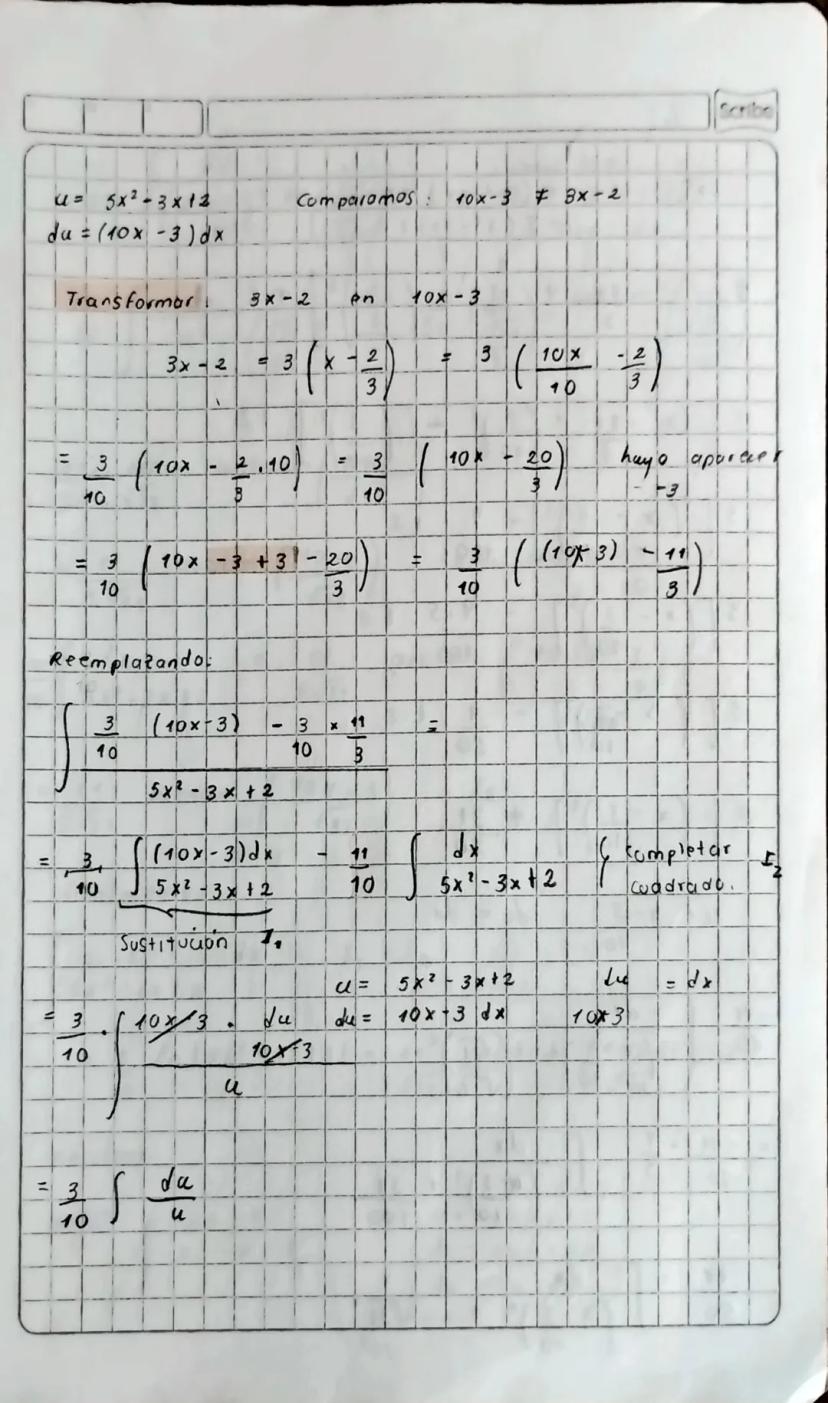 Scribe
u = 5x² - 3x + 2 Comparamos: 10x - 3 ≠ 3x - 2
du = (10x - 3) dx
Transformar: 3x - 2 en 10x - 3
3x - 2 = 3 ( x - 2/3 ) = 3 ( 10x/10 - 2/3 )
= 3/10 ( 10x - 2/3 . 10 ) = 3/10 ( 10x - 20/3 ) hago aparecer -3
= 3/10 ( 10x - 3 + 3 - 20/3 ) = 3/10 ( (10x - 3) - 11/3 )
Reemplazando:
∫ ( 3/10 (10x - 3) - 3/10 × 11/3 ) / ( 5x² - 3x + 2 ) =
= 3/10 ∫ (10x - 3) dx / ( 5x² - 3x + 2 ) - 11/10 ∫ dx / ( 5x² - 3x + 2 ) { completar cuadrado. I₂
Sustitución I₁
u = 5x² - 3x + 2 du / 10x-3 = dx
du = 10x - 3 dx
= 3/10 . ∫ ( 10x - 3 . du / 10x - 3 ) / u
= 3/10 ∫ du/u